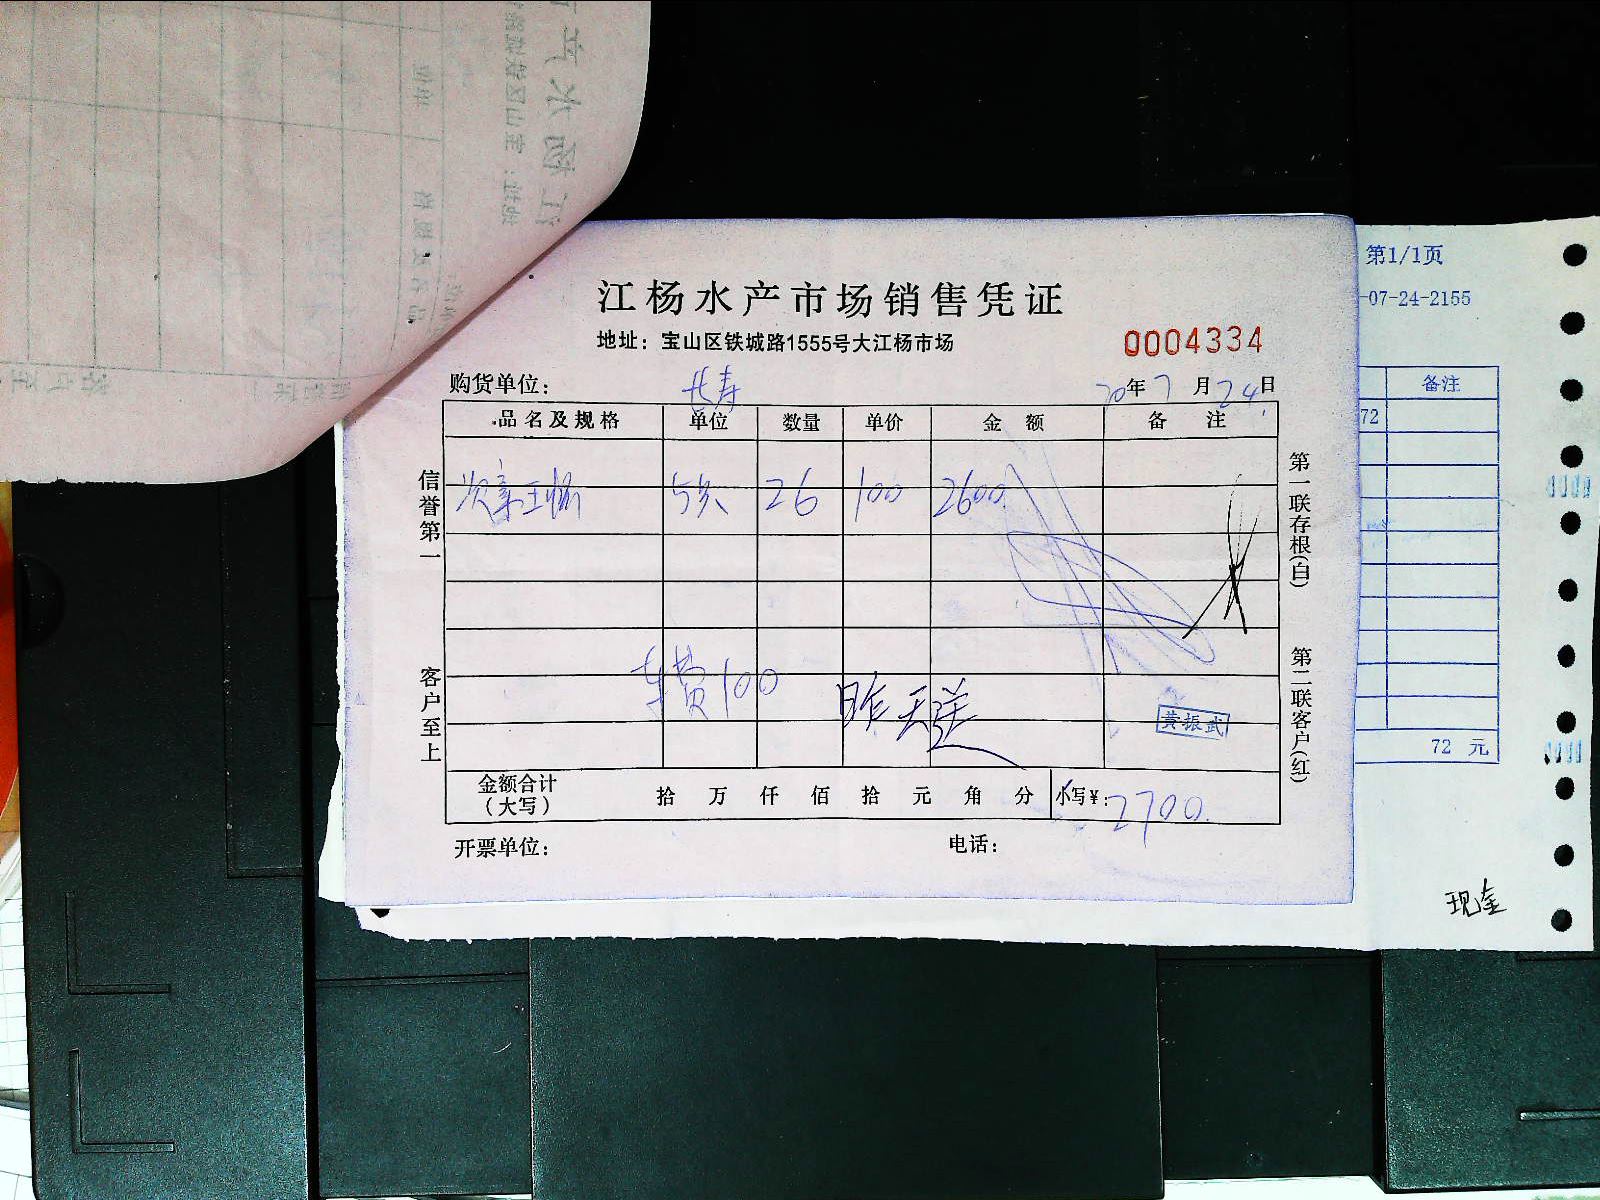 江杨水产市场销售凭证
地址：宝山区铁城路1555号大江杨市场
0004334
购货单位：长寿
20年7月24日
品名及规格 单位 数量 单价 金额 备注
26 100 2600
车费100
昨天送
黄振武
金额合计（大写） 拾 万 仟 佰 拾 元 角 分 小写¥：2700
开票单位： 电话：
信誉第一
客户至上
第一联存根(白)
第二联客户(红)
第1/1页
-07-24-2155
备注
72
72 元
现金